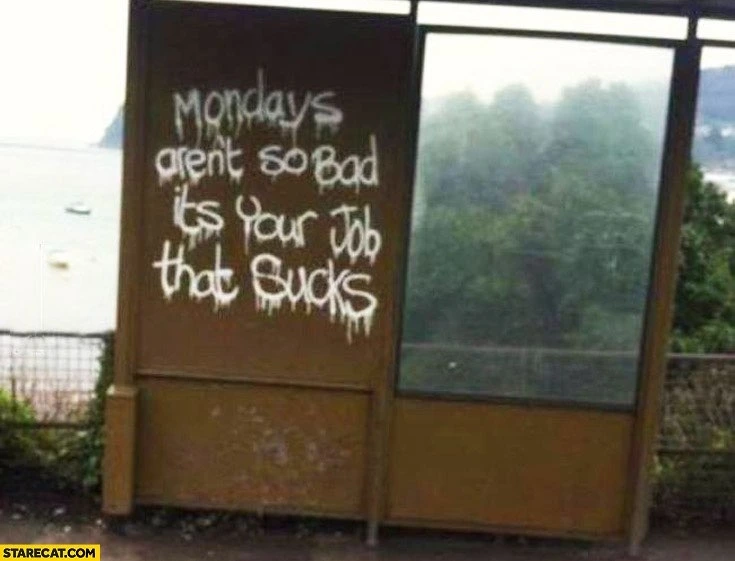 Mondays
aren't so Bad
its Your Job
that Sucks
STARECAT.COM